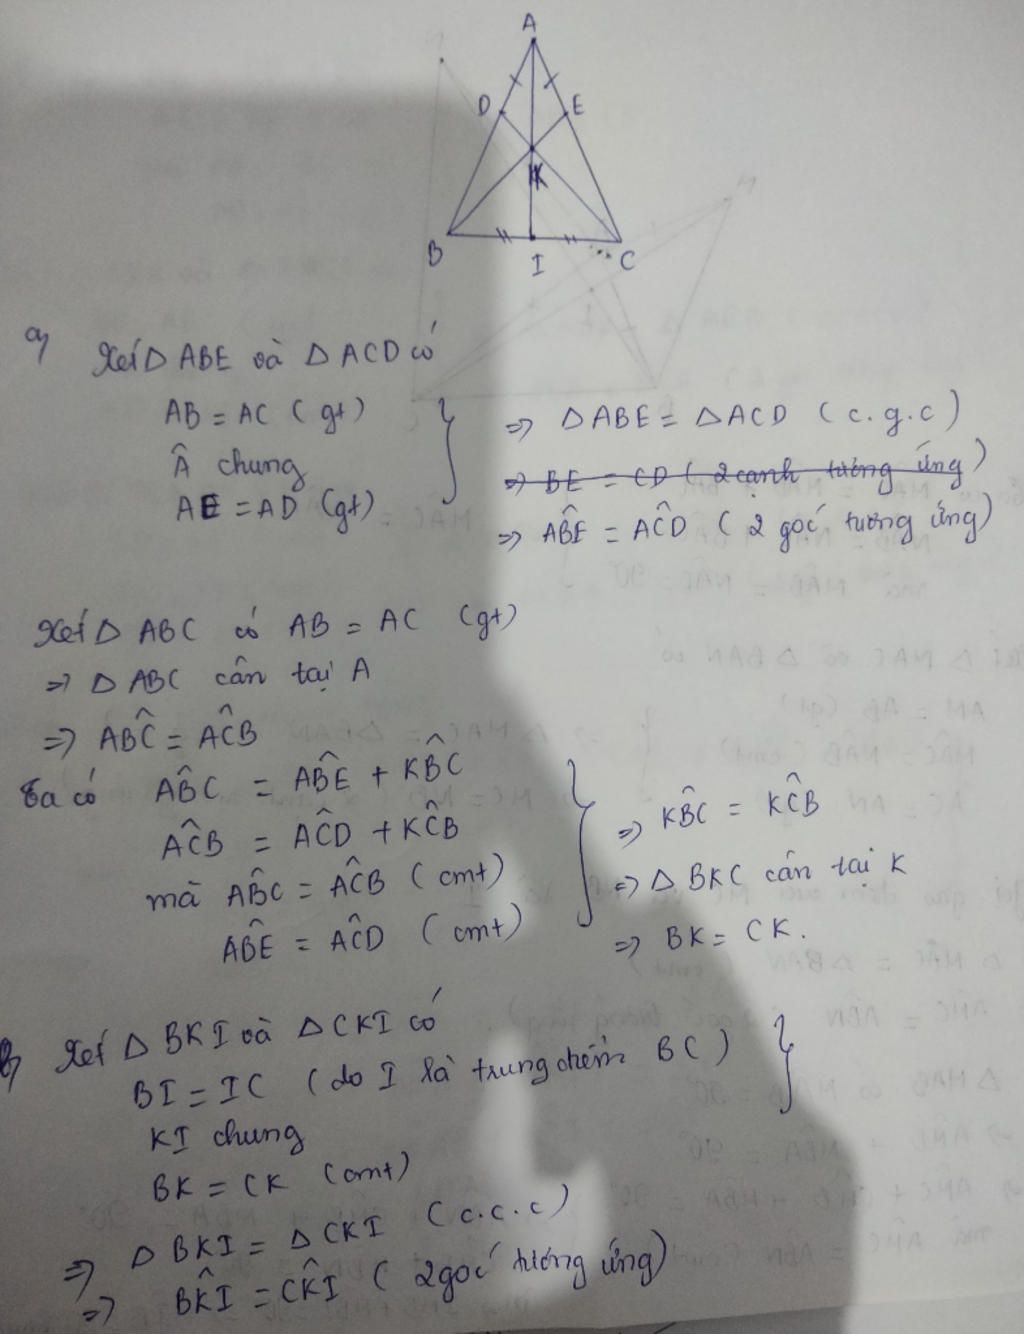 A
D E
K
B I C
a) Xét Δ ABE và Δ ACD có
AB = AC (gt)
Â chung
AE = AD (gt)
=> Δ ABE = Δ ACD (c.g.c)
=> BE = CD (2 cạnh tương ứng)
=> AB̂E = AĈD (2 góc tương ứng)
Xét Δ ABC có AB = AC (gt)
=> Δ ABC cân tại A
=> AB̂C = AĈB
Ta có AB̂C = AB̂E + KB̂C
AĈB = AĈD + KĈB
mà AB̂C = AĈB (cmt)
AB̂E = AĈD (cmt)
=> KB̂C = KĈB
=> Δ BKC cân tại K
=> BK = CK.
b) Xét Δ BKI và Δ CKI có
BI = IC (do I là trung điểm BC)
KI chung
BK = CK (cmt)
=> Δ BKI = Δ CKI (c.c.c)
=> BK̂I = CK̂I (2 góc tương ứng)